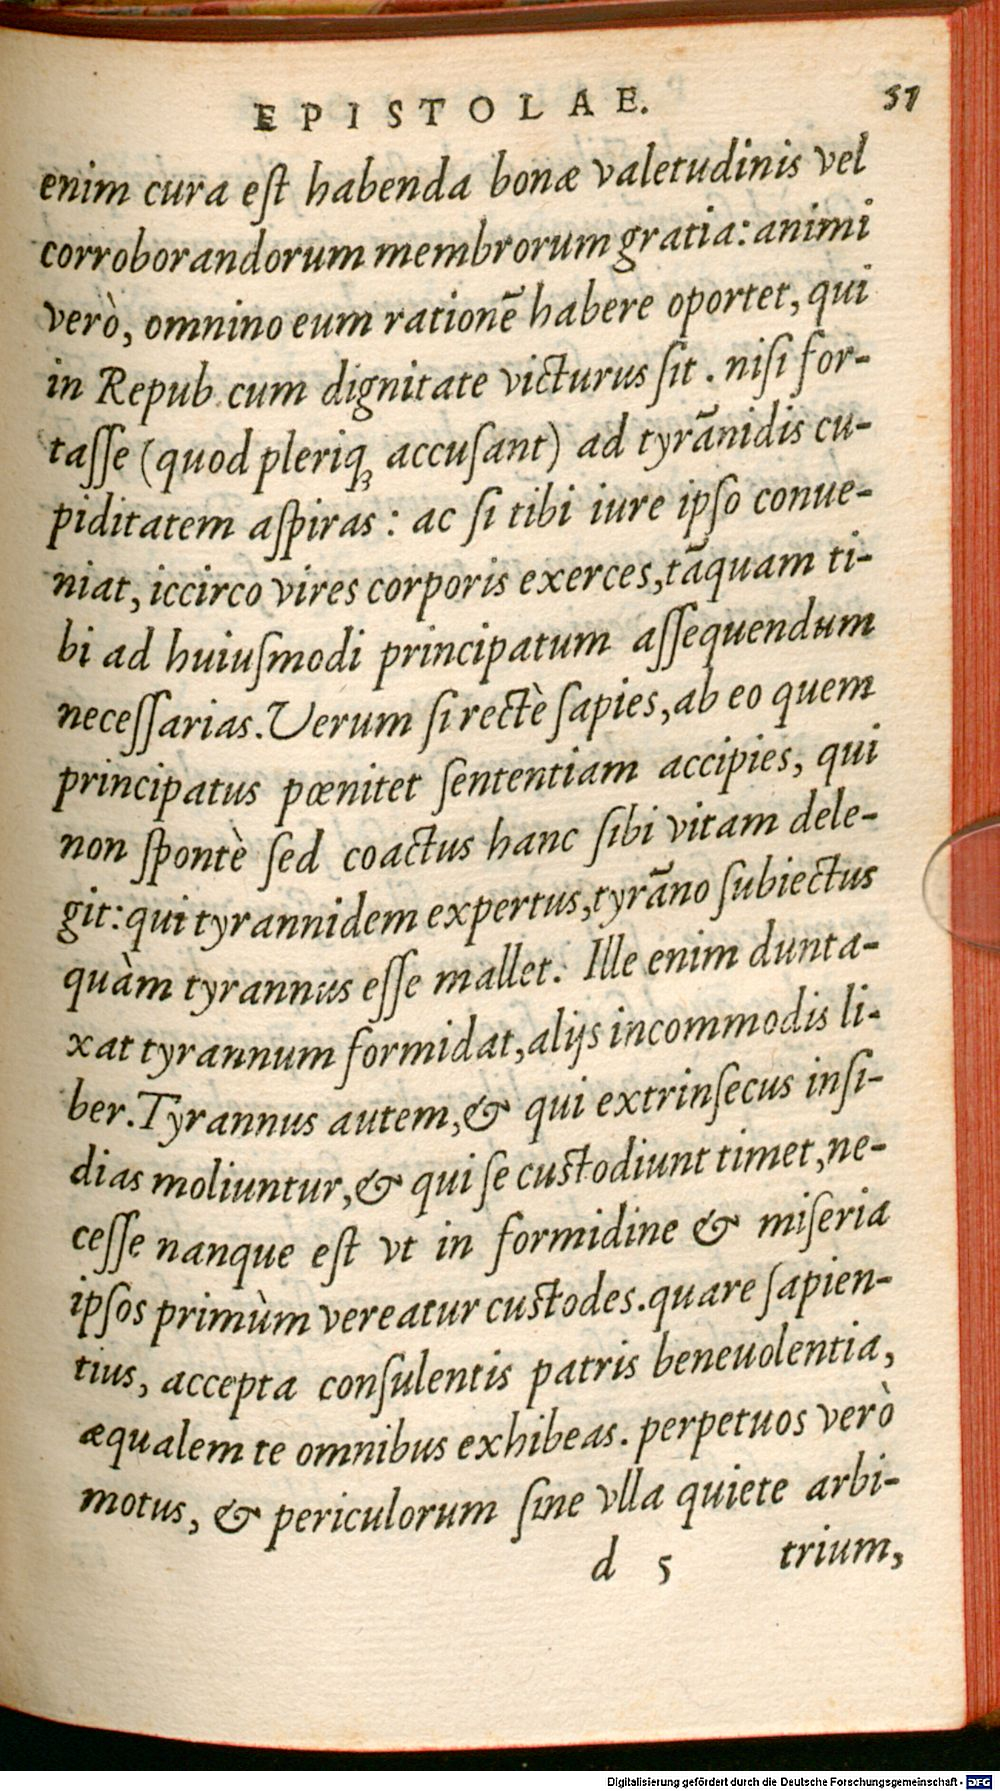 EPISTOLAE. 57
enim cura eſt habenda bonæ valetudinis vel
corroborandorum membrorum gratia: animi
verò, omnino eum rationẽ habere oportet, qui
in Repub. cum dignitate victurus ſit. niſi for-
taſſe (quod pleriqꝫ accuſant) ad tyrãnidis cu-
piditatem aſpiras: ac ſi tibi iure ipſo conue-
niat, iccirco vires corporis exerces, tãquam ti-
bi ad huiuſmodi principatum aſſequendum
neceſſarias. Verum ſi rectè ſapies, ab eo quem
principatus pœnitet ſententiam accipies, qui
non ſpontè ſed coactus hanc ſibi vitam dele-
git: qui tyrannidem expertus, tyrãno ſubiectus
quàm tyrannus eſſe mallet. Ille enim dunta-
xat tyrannum formidat, alijs incommodis li-
ber. Tyrannus autem, & qui extrinſecus inſi-
dias moliuntur, & qui ſe cuſtodiunt timet, ne-
ceſſe nanque eſt vt in formidine & miſeria
ipſos primùm vereatur cuſtodes. quare ſapien-
tius, accepta conſulentis patris beneuolentia,
æqualem te omnibus exhibeas. perpetuos verò
motus, & periculorum ſine vlla quiete arbi-
d 5 trium,
Digitalisierung gefördert durch die Deutsche Forschungsgemeinschaft - DFG